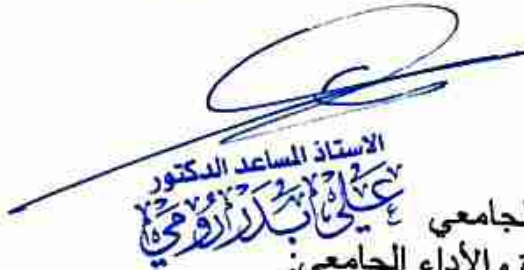 الاستاذ المساعد الدكتور
علي بدر أرومي
الجامعي
الأداء الجامعي: